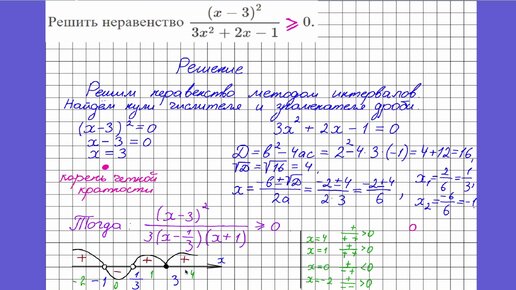 Решить неравенство (x − 3)² / (3x² + 2x − 1) ⩾ 0.
Решение
Решим неравенство методом интервалов
Найдём нули числителя и знаменателя дроби
(x-3)² = 0
x-3 = 0
x = 3
корень чётной
кратности
3x² + 2x - 1 = 0
D = b² - 4ac = 2² - 4·3·(-1) = 4+12 = 16,
√D = √16 = 4,
x = (-b ± √D)/2a = (-2±4)/(2·3) = (-2±4)/6, x₁ = 2/6 = 1/3,
x₂ = -6/6 = -1
Тогда: (x-3)² / (3(x-1/3)(x+1)) ⩾ 0
+ − + + x
-2 -1 0 1/3 1 3 4
x=4 +/++ >0
x=1 +/++ >0
x=0 +/-+ <0
x=-2 +/-- >0
0